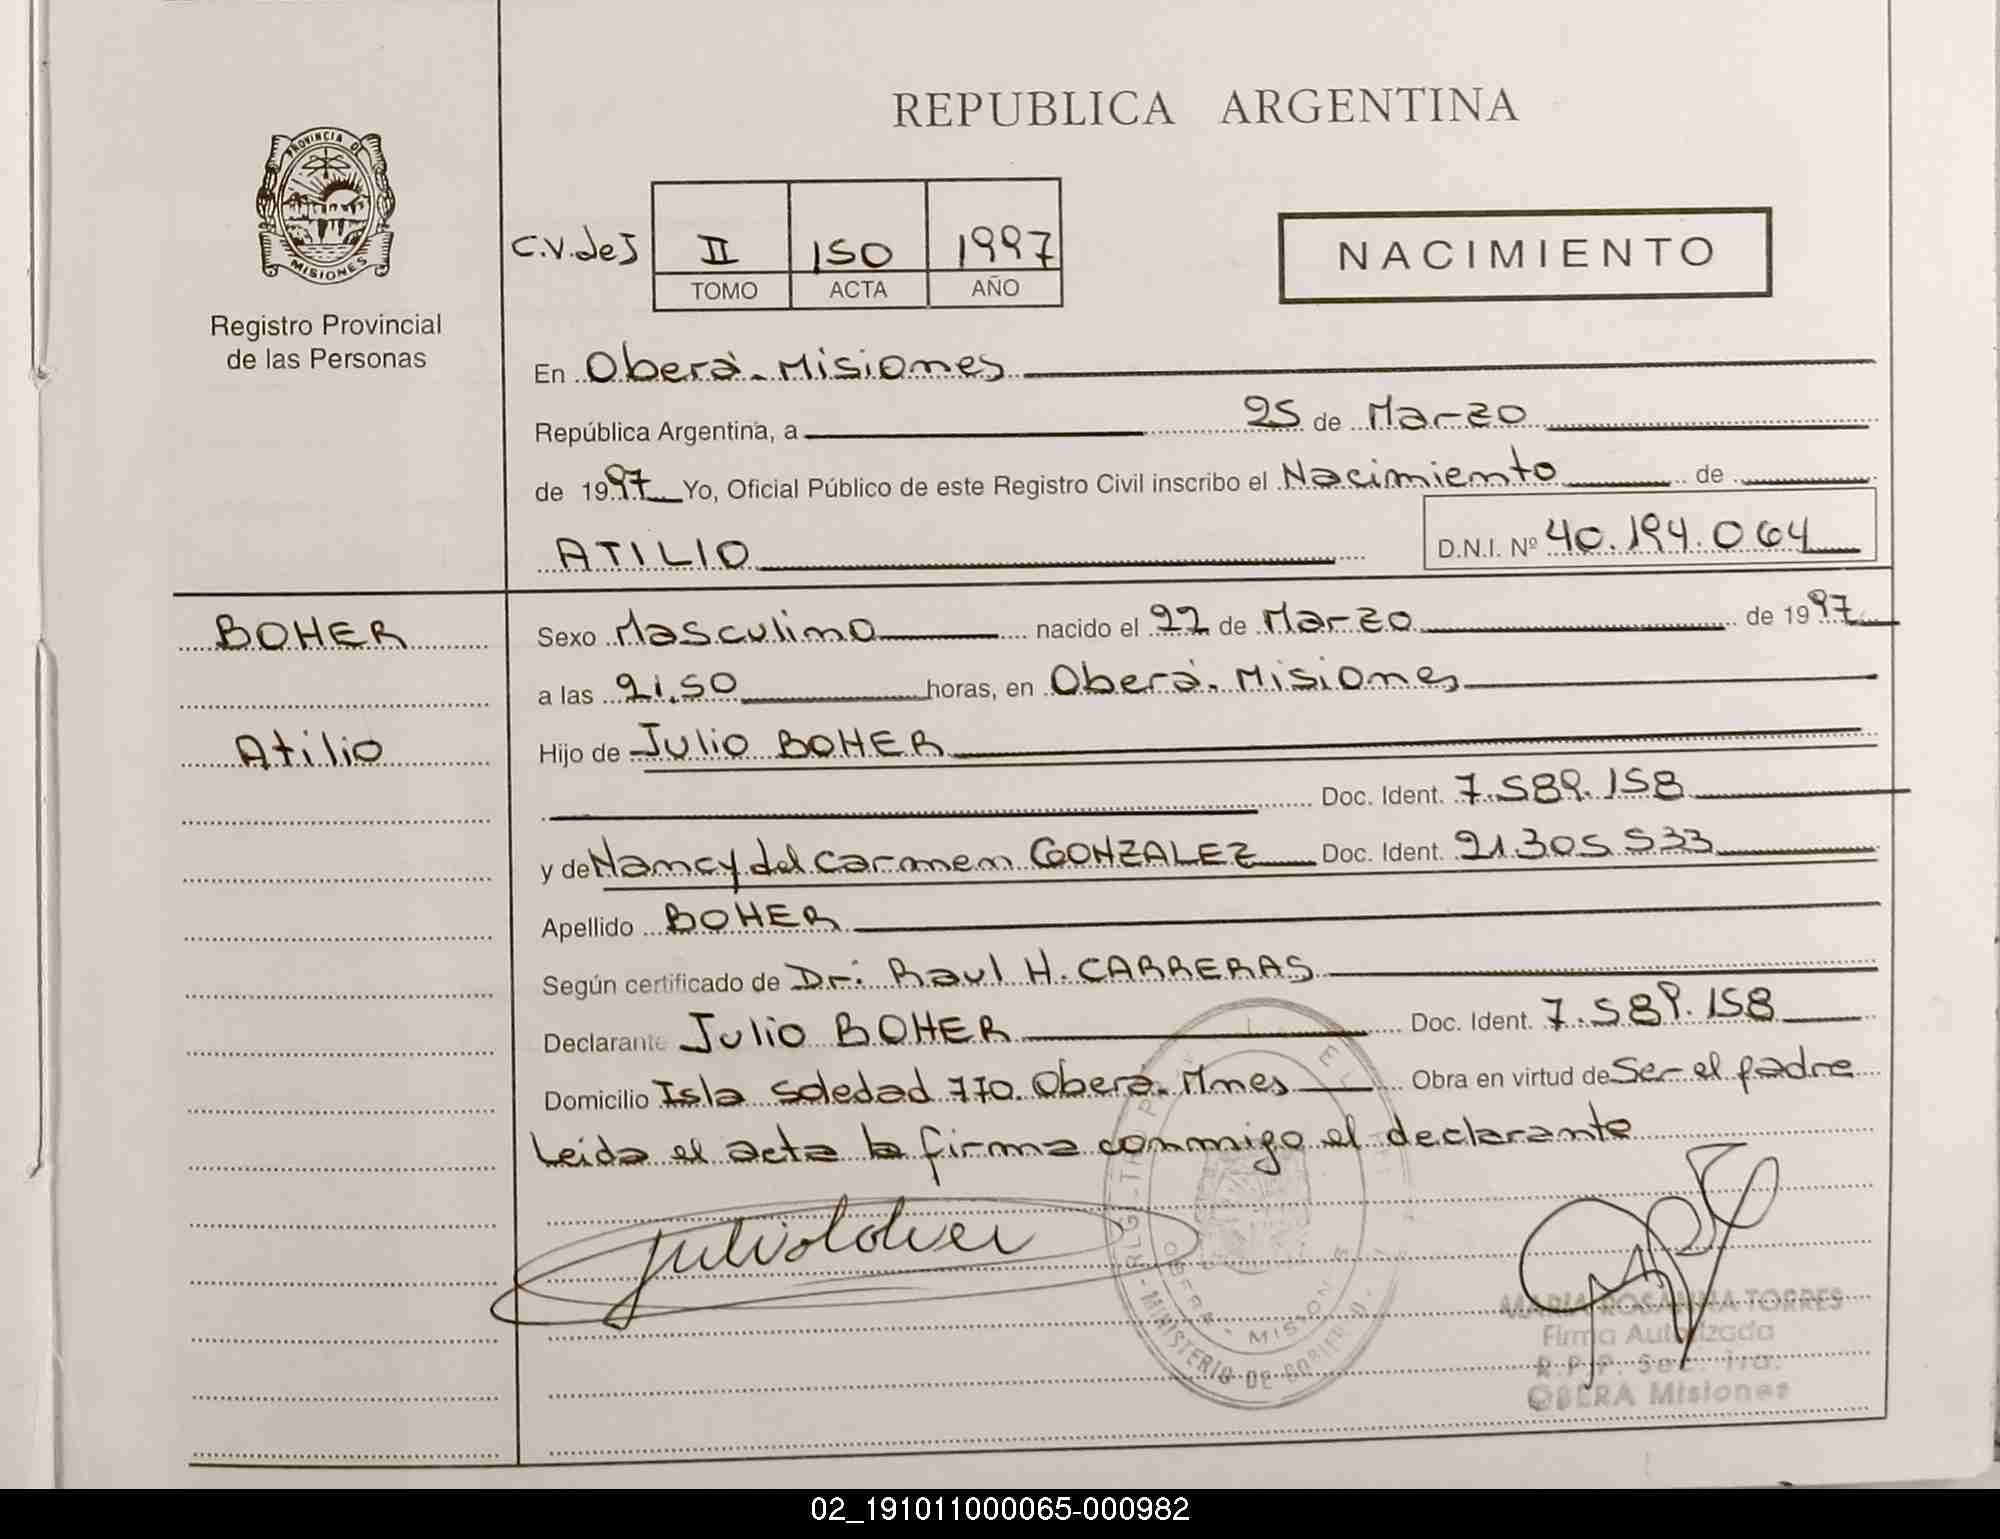 REPUBLICA ARGENTINA
PROVINCIA DE
MISIONES
Registro Provincial
de las Personas
C.V.deJ II 150 1997
TOMO ACTA AÑO
NACIMIENTO
En Oberá. Misiones
República Argentina, a 25 de Marzo
de 1997 Yo, Oficial Público de este Registro Civil inscribo el Nacimiento de
ATILIO D.N.I. Nº 40.194.064
BOHER
Atilio
Sexo Masculino nacido el 22 de Marzo de 1997
a las 21.50 horas, en Oberá. Misiones
Hijo de Julio BOHER
Doc. Ident. 7.589.158
y de Nancy del Carmen GONZALEZ Doc. Ident. 21.305.533
Apellido BOHER
Según certificado de Dr: Raul H. CARRERAS
Declarante Julio BOHER Doc. Ident. 7.589.158
Domicilio Isla Soledad 770. Oberá. Mnes Obra en virtud de Ser el padre
Leida el acta la firma conmigo el declarante
MINISTERIO DE GOBIERNO
OBERA - MISIONES
MARIA ROSANNA TORRES
Firma Autorizada
R.P.P. Sec. 1ra.
OBERA Misiones
02_191011000065-000982